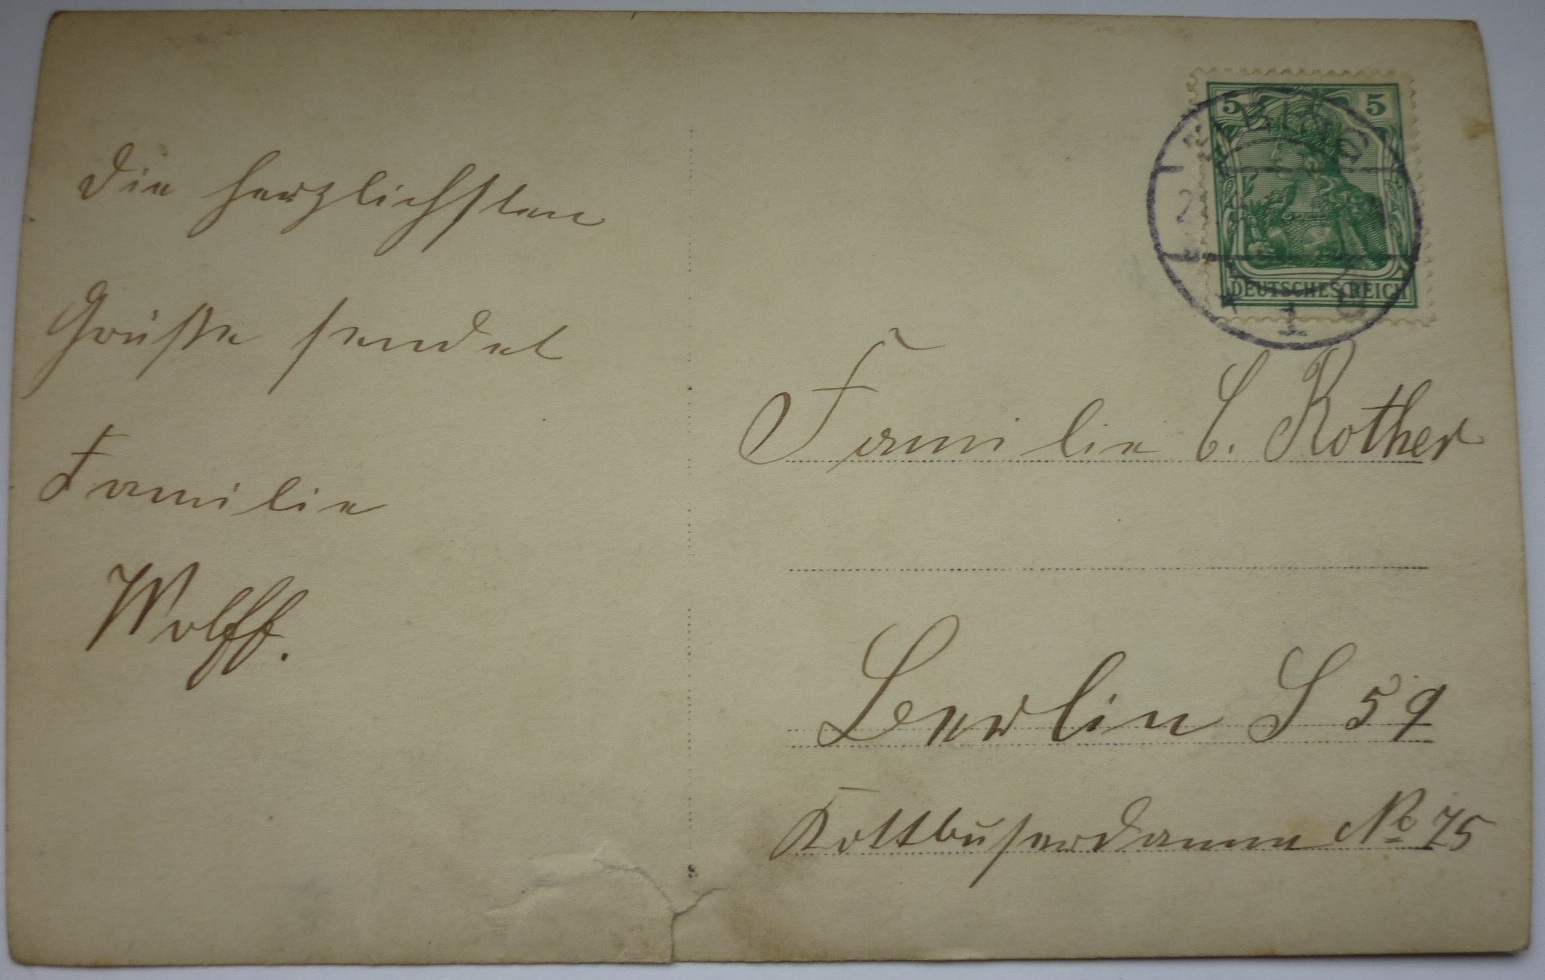 Die herzlichsten
Grüße sendet
Familie
Wolff.
5 5
DEUTSCHES REICH
1
Familie C. Rother
Berlin S 59
Kottbuserdamm No 75